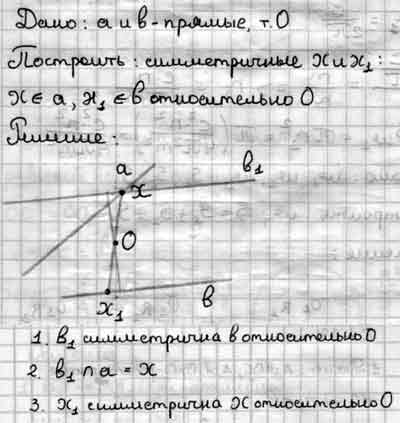 Дано: а и в - прямые, т. О
Построить: симметричные х и х₁:
х ∈ а, х₁ ∈ в относительно О
Решение:
а
в₁
х
О
х₁
в
1. в₁ симметрична в относительно О
2. в₁ ∩ а = х
3. х₁ симметрична х относительно О